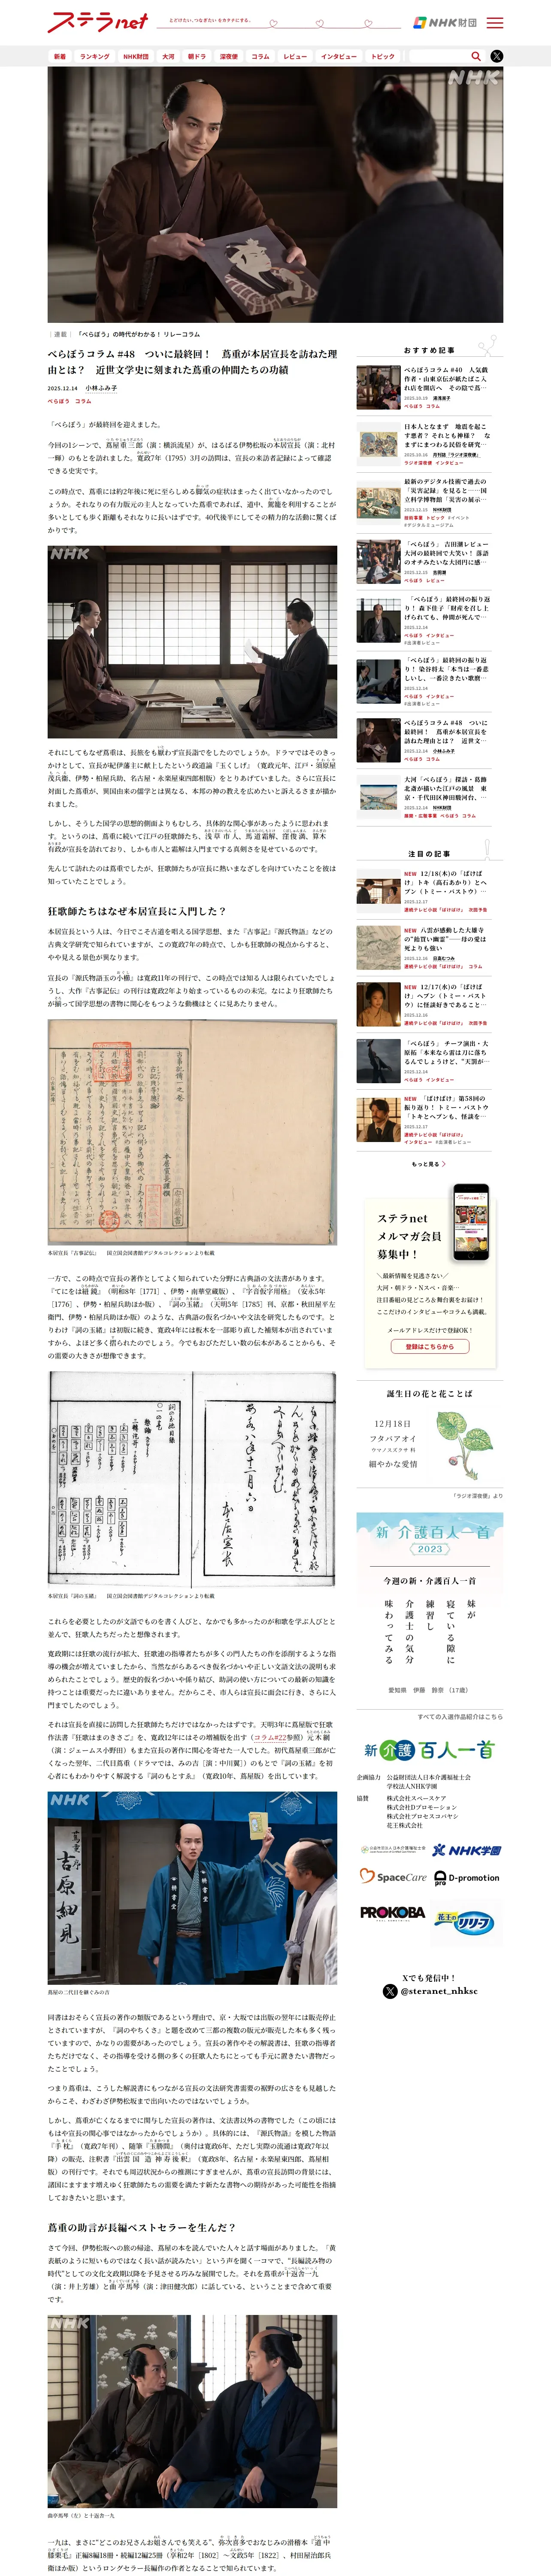 ステラnet
とどけたい、つなぎたい をカタチにする。
NHK財団
新着
ランキング
NHK財団
大河
朝ドラ
深夜便
コラム
レビュー
インタビュー
トピック
NHK
｜連載｜ 「べらぼう」の時代がわかる！ リレーコラム
べらぼうコラム #48　ついに最終回！　蔦重が本居宣長を訪ねた理
由とは？　近世文学史に刻まれた蔦重の仲間たちの功績
2025.12.14　小林ふみ子
べらぼう　コラム
「べらぼう」が最終回を迎えました。
今回の1シーンで、蔦屋重三郎（演：横浜流星）が、はるばる伊勢松坂の本居宣長（演：北村
一輝）のもとを訪れました。寛政7年（1795）3月の訪問は、宣長の来訪者記録によって確認
できる史実です。
この時点で、蔦重には約2年後に死に至らしめる脚気の症状はまったく出ていなかったのでしょ
うか。それなりの有力版元の主人となっていた蔦重であれば、道中、駕籠を利用することが
多いとしても歩く距離もそれなりに長いはずです。40代後半にしてその精力的な活動に驚くば
かりです。
NHK
それにしてもなぜ蔦重は、長旅をも厭わず宣長詣でをしたのでしょうか。ドラマではそのきっ
かけとして、宣長が紀伊藩主に献上したという政道論『玉くしげ』（寛政元年、江戸・須原屋
茂兵衛、伊勢・柏屋兵助、名古屋・永楽屋東四郎相版）をとりあげていました。さらに宣長に
対面した蔦重が、異国由来の儒学とは異なる、本邦の神の教えを広めたいと訴えるさまが描か
れました。
しかし、そうした国学の思想的側面よりももしろ、具体的な関心事があったように思われま
す。というのは、蔦重に続いて江戸の狂歌師たち、浅草市人、馬道霜解、窪俊満、算木
有政が宣長を訪れており、しかも市人と霜解は入門までする真剣さを見せているのです。
先んじて訪れたのは蔦重でしたが、狂歌師たちが宣長に熱いまなざしを向けていたことを彼は
知っていたことでしょう。
狂歌師たちはなぜ本居宣長に入門した？
本居宣長という人は、今日でこそ古道を唱える国学思想、また『古事記』『源氏物語』などの
古典文学研究で知られていますが、この寛政7年の時点で、しかも狂歌師の視点からすると、
やや見える景色が異なります。
宣長の『源氏物語玉の小櫛』は寛政11年の刊行で、この時点では知る人は限られていたでしょ
うし、大作『古事記伝』の刊行は寛政2年より始まっているものの未完。なにより狂歌師たち
が揃って国学思想の書物に関心をもつような動機はとくに見あたりません。
本居宣長『古事記伝』　国立国会図書館デジタルコレクションより転載
一方で、この時点で宣長の著作としてよく知られていた分野に古典語の文法書があります。
『てにをは紐鏡』（明和8年［1771］、伊勢・南華堂蔵版）、『字音仮字用格』（安永5年
［1776］、伊勢・柏屋兵助ほか版）、『詞の玉緒』（天明5年［1785］刊、京都・秋田屋平左
衛門、伊勢・柏屋兵助ほか版）のような、古典語の仮名づかいや文法を研究したものです。と
りわけ『詞の玉緒』は初版に続き、寛政4年には板木を一部彫り直した補刻本が出されていま
すから、よほど多く摺られたのでしょう。今でもおびただしい数の伝本があることからも、そ
の需要の大きさが想像できます。
本居宣長『詞の玉緒』　国立国会図書館デジタルコレクションより転載
これらを必要としたのが文語でものを書く人びと、なかでも多かったのが和歌を学ぶ人びとと
並んで、狂歌人たちだったと想像されます。
寛政期には狂歌の流行が拡大、狂歌連の指導者たちが多くの門人たちの作を添削するような指
導の機会が増えていましたから、当然ながらあるべき仮名づかいや正しい文語文法の説明も求
められたことでしょう。歴史的仮名づかいや係り結び、助詞の使い方についての最新の知識を
持つことは重要だったに違いありません。だからこそ、市人らは宣長に面会に行き、さらに入
門までしたのでしょう。
それは宣長を直接に訪問した狂歌師たちだけではなかったはずです。天明3年に蔦屋版で狂歌
作法書『狂歌はまのきさご』を、寛政12年にはその増補版を出す（コラム#22参照）元木網
（演：ジェームス小野田）もまた宣長の著作に関心を寄せた一人でした。初代蔦屋重三郎が亡
くなった翌年、二代目蔦重（ドラマでは、みの吉［演：中川翼］）のもとで『詞の玉緒』を初
心者にもわかりやすく解説する『詞のもとすゑ』（寛政10年、蔦屋版）を出しています。
NHK
蔦重序
吉原細見
耕書堂
蔦屋の二代目を継ぐみの吉
同書はおそらく宣長の著作の類版であるという理由で、京・大坂では出版の翌年には販売停止
とされていますが、『詞のやちくさ』と題を改めて三都の複数の版元が販売した本も多く残っ
ていますので、かなりの需要があったのでしょう。宣長の著作やその解説書は、狂歌の指導者
たちだけでなく、その指導を受ける側の多くの狂歌人たちにとっても手元に置きたい書物だっ
たことでしょう。
つまり蔦重は、こうした解説書にもつながる宣長の文法研究書需要の裾野の広さをも見越した
からこそ、わざわざ伊勢松坂まで出向いたのではないでしょうか。
しかし、蔦重が亡くなるまでに関与した宣長の著作は、文法書以外の書物でした（この頃には
もはや宣長の関心事ではなかったからでしょうか）。具体的には、『源氏物語』を模した物語
『手枕』（寛政7年刊）、随筆『玉勝間』（奥付は寛政6年、ただし実際の流通は寛政7年以
降）の販売、注釈書『出雲国造神寿後釈』（寛政8年、名古屋・永楽屋東四郎、蔦屋相
版）の刊行です。それでも周辺状況からの推測にすぎませんが、蔦重の宣長訪問の背景には、
諸国にますます増えゆく狂歌師たちの需要を満たす新たな書物への期待があった可能性を指摘
しておきたいと思います。
蔦重の助言が長編ベストセラーを生んだ？
さて今回、伊勢松坂への旅の帰途、蔦屋の本を読んでいた人々と話す場面がありました。「黄
表紙のように短いものではなく長い話が読みたい」という声を聞く一コマで、“長編読み物の
時代”としての文化文政期以降を予見させる巧みな展開でした。それを蔦重が十返舎一九
（演：井上芳雄）と曲亭馬琴（演：津田健次郎）に話している、ということまで含めて重要
です。
NHK
曲亭馬琴（左）と十返舎一九
一九は、まさに“どこのお兄さんお姐さんでも笑える”、弥次喜多でおなじみの滑稽本『道中
膝栗毛』正編8編18冊・続編12編25冊（享和2年［1802］～文政5年［1822］、村田屋治郎兵
衛ほか版）というロングセラー長編作の作者となることで知られています。
おすすめ記事
べらぼうコラム #40　人気戯
作者・山東京伝が紙たばこ入
れ店を開店へ　その陰で蔦…
2025.10.19
べらぼう　コラム
日本人となまず　地震を起こ
す悪者？ それとも神様？　な
まずにまつわる民俗を研究…
2025.12.15　月刊誌『ラジオ深夜便』
ラジオ深夜便　インタビュー
最新のデジタル技術で過去の
「災害記録」を見ると――国
立科学博物館「災害の展示…
2025.12.15　NHK財団
技術事業　トピック　#イベント
#デジタルミュージアム
「べらぼう」 吉田潮レビュー
大河の最終回で大笑い！ 落語
のオチみたいな大団円に感…
2025.12.15　吉田潮
べらぼう　レビュー
「べらぼう」最終回の振り返
り！ 森下佳子「財産を召し上
げられても、仲間が死んで…
2025.12.14
べらぼう　インタビュー
#出演者レビュー
「べらぼう」最終回の振り返
り！ 染谷将太「本当は一番悲
しいし、一番泣きたい歌麿…
2025.12.14
べらぼう　インタビュー
#出演者レビュー
べらぼうコラム #48　ついに
最終回！　蔦重が本居宣長を
訪ねた理由とは？　近世文…
2025.12.14　小林ふみ子
べらぼう　コラム
大河「べらぼう」探訪・葛飾
北斎が描いた江戸の風景　東
京・千代田区神田駿河台、…
2025.12.14　NHK財団
展開・広報事業　べらぼう　コラム
注目の記事
NEW 12/18(木)の「ばけば
け」トキ（髙石あかり）とヘ
ブン（トミー・バストウ）…
2025.12.17
連続テレビ小説「ばけばけ」　次回予告
NEW 八雲が感動した大雄寺
の“飴買い幽霊”――母の愛は
死よりも強い
2025.12.16　日高むつみ
連続テレビ小説「ばけばけ」　コラム
NEW 12/17(水)の「ばけば
け」ヘブン（トミー・バスト
ウ）に怪談好きであること…
2025.12.16
連続テレビ小説「ばけばけ」　次回予告
「べらぼう」 チーフ演出・大
原拓「本来なら雷は刀に落ち
るんでしょうけど、“天罰が…
2025.12.14
べらぼう　インタビュー
NEW 「ばけばけ」第58回の
振り返り！ トミー・バストウ
「トキとヘブンも、怪談を…
2025.12.17
連続テレビ小説「ばけばけ」
インタビュー　#出演者レビュー
もっと見る
ステラnet
メルマガ会員
募集中！
＼最新情報を見逃さない／
大河・朝ドラ・Nスペ・音楽…
注目番組の見どころ＆舞台裏をお届け！
ここだけのインタビューやコラムも満載。
メールアドレスだけで登録OK！
登録はこちらから
誕生日の花と花ことば
12月18日
フタバアオイ
ウマノスズクサ 科
細やかな愛情
「ラジオ深夜便」より
新 介護百人一首
2023
今週の新・介護百人一首
妹が
寝ている隙に
練習し
介護士の気分
味わってみる
愛知県　伊藤　鈴奈（17歳）
すべての入選作品紹介はこちら
新 介護 百人一首
企画協力　公益財団法人日本介護福祉士会
学校法人NHK学園
協賛　株式会社スペースケア
株式会社Dプロモーション
株式会社プロセスコバヤシ
花王株式会社
公益社団法人 日本介護福祉士会
NHK学園
SpaceCare
D-promotion
D pro
PROKOBA
花王の リリーフ
Xでも発信中！
@steranet_nhksc